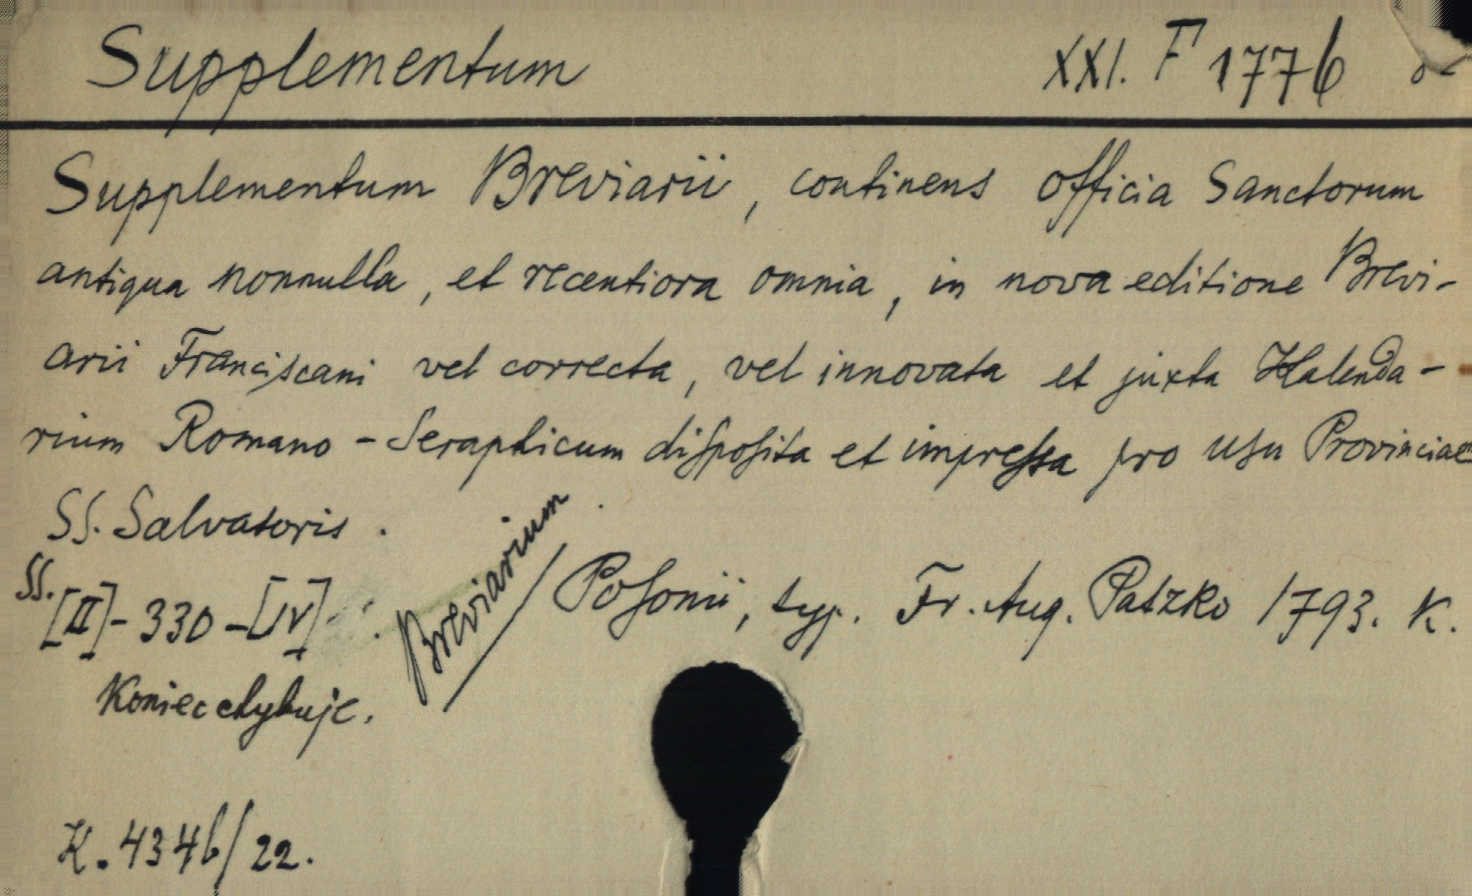 Supplementum XXI. F 1776
Supplementum Breviarii, continens officia Sanctorum
antiqua nonnulla, et recentiora omnia, in nova editione Brevi-
arii Franciscani vel correcta, vel innovata et juxta Kalenda-
rium Romano-Seraphicum disposita et impressa pro usu Provinciae
SS. Salvatoris.
Breviarium
Posonii, typ. Fr. Aug. Patzko 1793. K.
SS. [II]-330-[IV]
Koniec chybuje.
K. 4346/22.